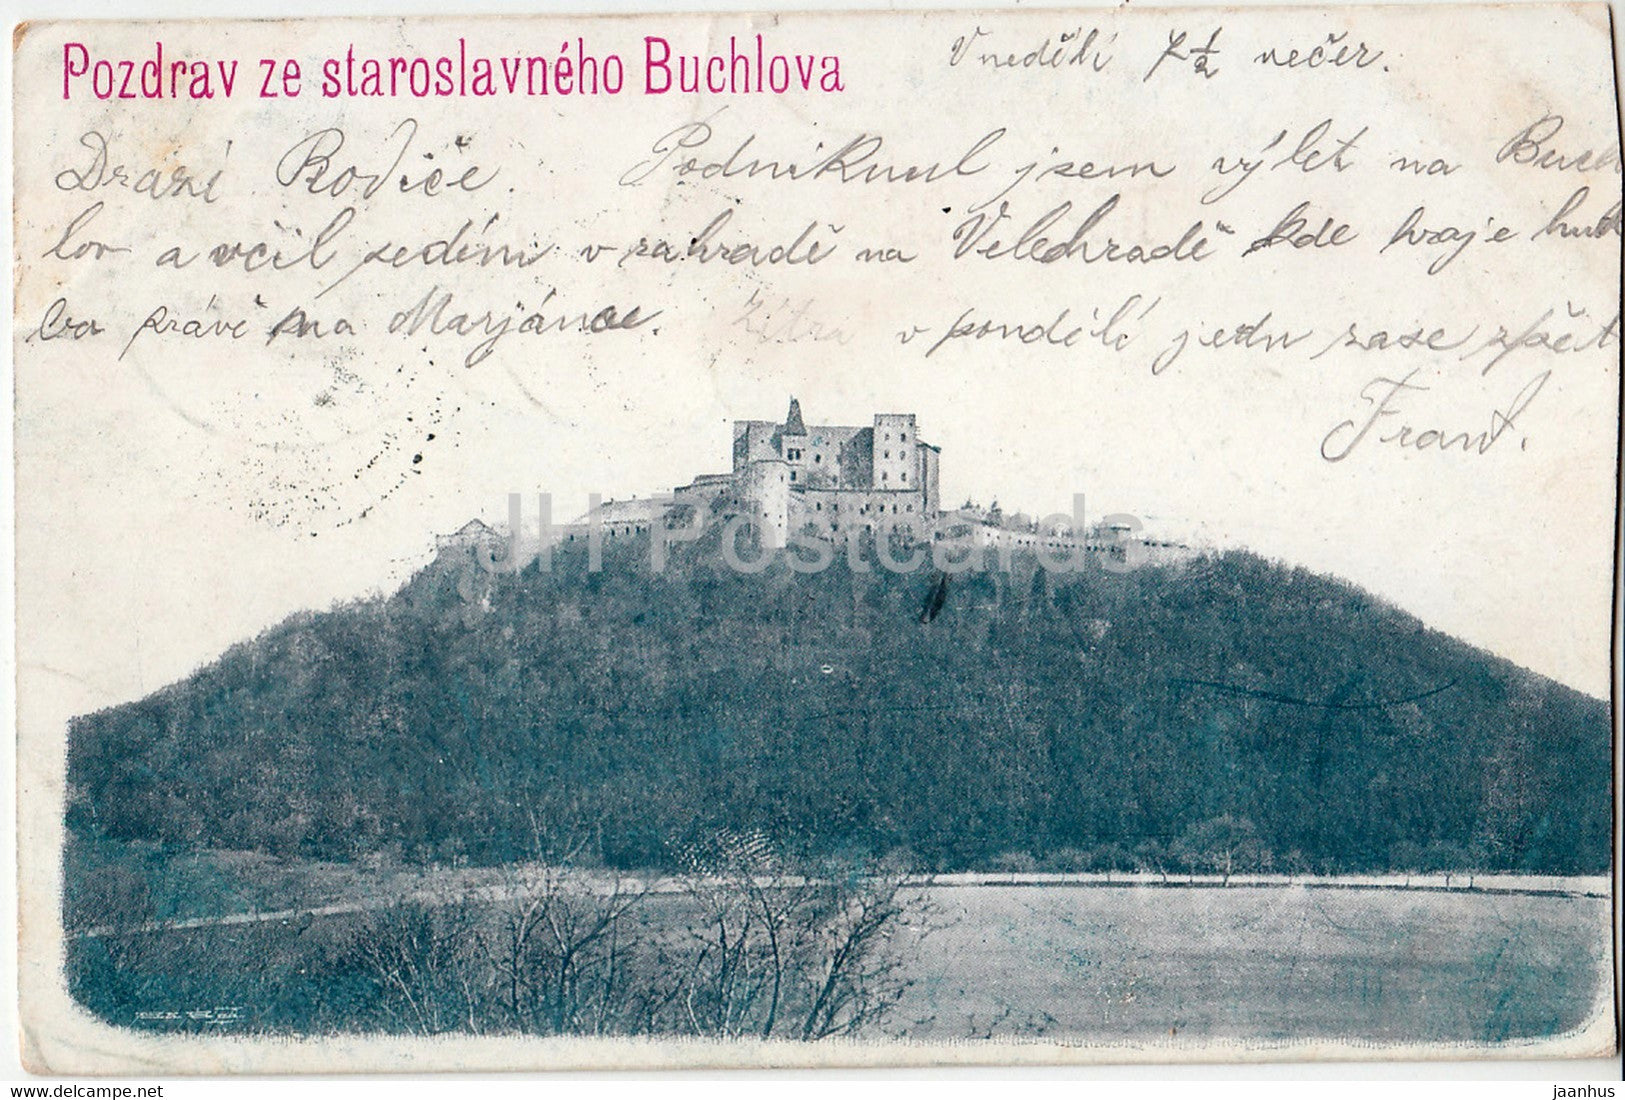 Pozdrav ze staroslavného Buchlova
V neděli 7 1/2 večer.
Drazí Rodiče. Podniknul jsem výlet na Buch
lov a včil sedím v zahradě na Velehradě kde hraje hud
ba právě na Marjánce. Zítra v pondělí jedu zase zpět
Frant.
JH Postcards
jaanhus